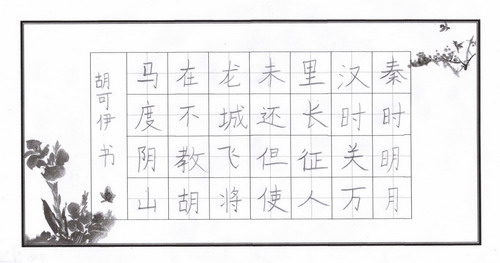 秦时明月
汉时关万
里长征人
未还但使
龙城飞将
在不教胡
马度阴山
胡可伊书